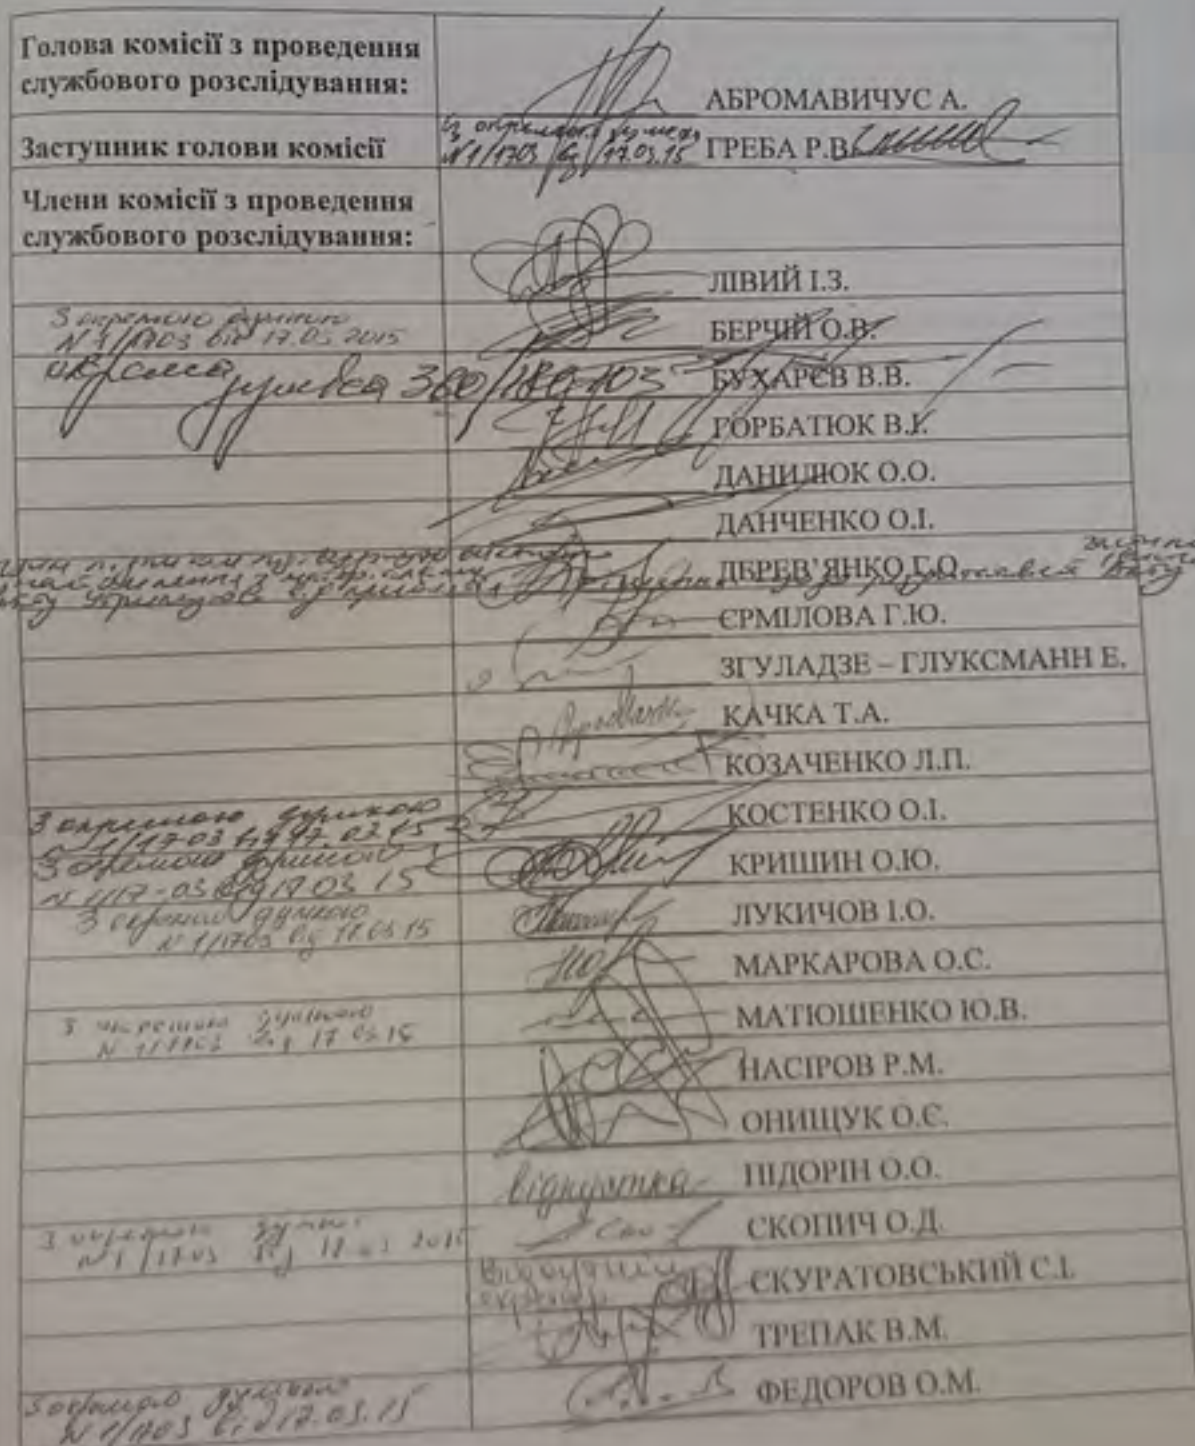 Голова комісії з проведення
службового розслідування:
АБРОМАВИЧУС А.
Заступник голови комісії
N1/1703 від 17.03.15 ГРЕБА Р.В.
Члени комісії з проведення
службового розслідування:
ЛІВИЙ І.З.
З окремою думкою
N 1/1703 від 17.03.2015
БЕРЧІЙ О.В.
окрема думка БУХАРЄВ В.В.
ГОРБАТЮК В.І.
ДАНИЛЮК О.О.
ДАНЧЕНКО О.І.
ДЕРЕВ'ЯНКО Г.О.
ЄРМІЛОВА Г.Ю.
ЗГУЛАДЗЕ – ГЛУКСМАНН Е.
КАЧКА Т.А.
КОЗАЧЕНКО Л.П.
З окремою думкою
N 1/17-03 від 17.03.15
КОСТЕНКО О.І.
З окремою думкою
N 1/17-03 від 17 03 15
КРИШИН О.Ю.
З окремою думкою
N 1/1703 від 17.03.15
ЛУКИЧОВ І.О.
МАРКАРОВА О.С.
З окремою думкою
N 1/1703 від 17 03 15
МАТЮШЕНКО Ю.В.
НАСІРОВ Р.М.
ОНИЩУК О.Є.
відпустка ПІДОРІН О.О.
З окремою думкою
N1/1703 від 17 03 2015
СКОПИЧ О.Д.
СКУРАТОВСЬКИЙ С.І.
ТРЕПАК В.М.
З окремою думкою
N 1/1703 від 17.03.15
ФЕДОРОВ О.М.